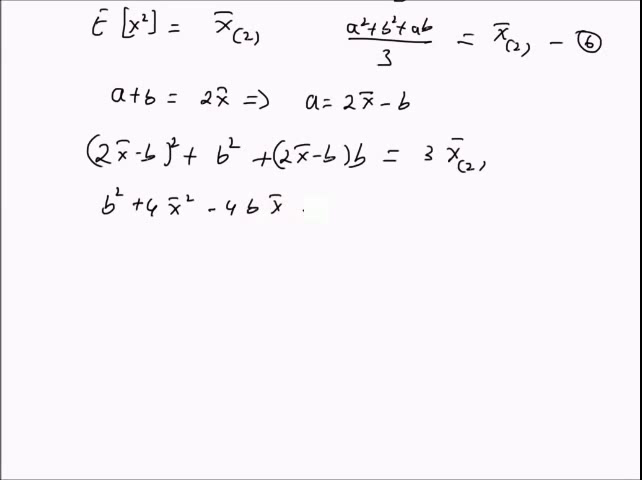 E [x²] = x̄₍₂₎ (a²+b²+ab)/3 = x̄₍₂₎ - ⑥
a+b = 2x̄ => a = 2x̄ - b
(2x̄-b)² + b² + (2x̄-b)b = 3 x̄₍₂₎
b² + 4x̄² - 4bx̄